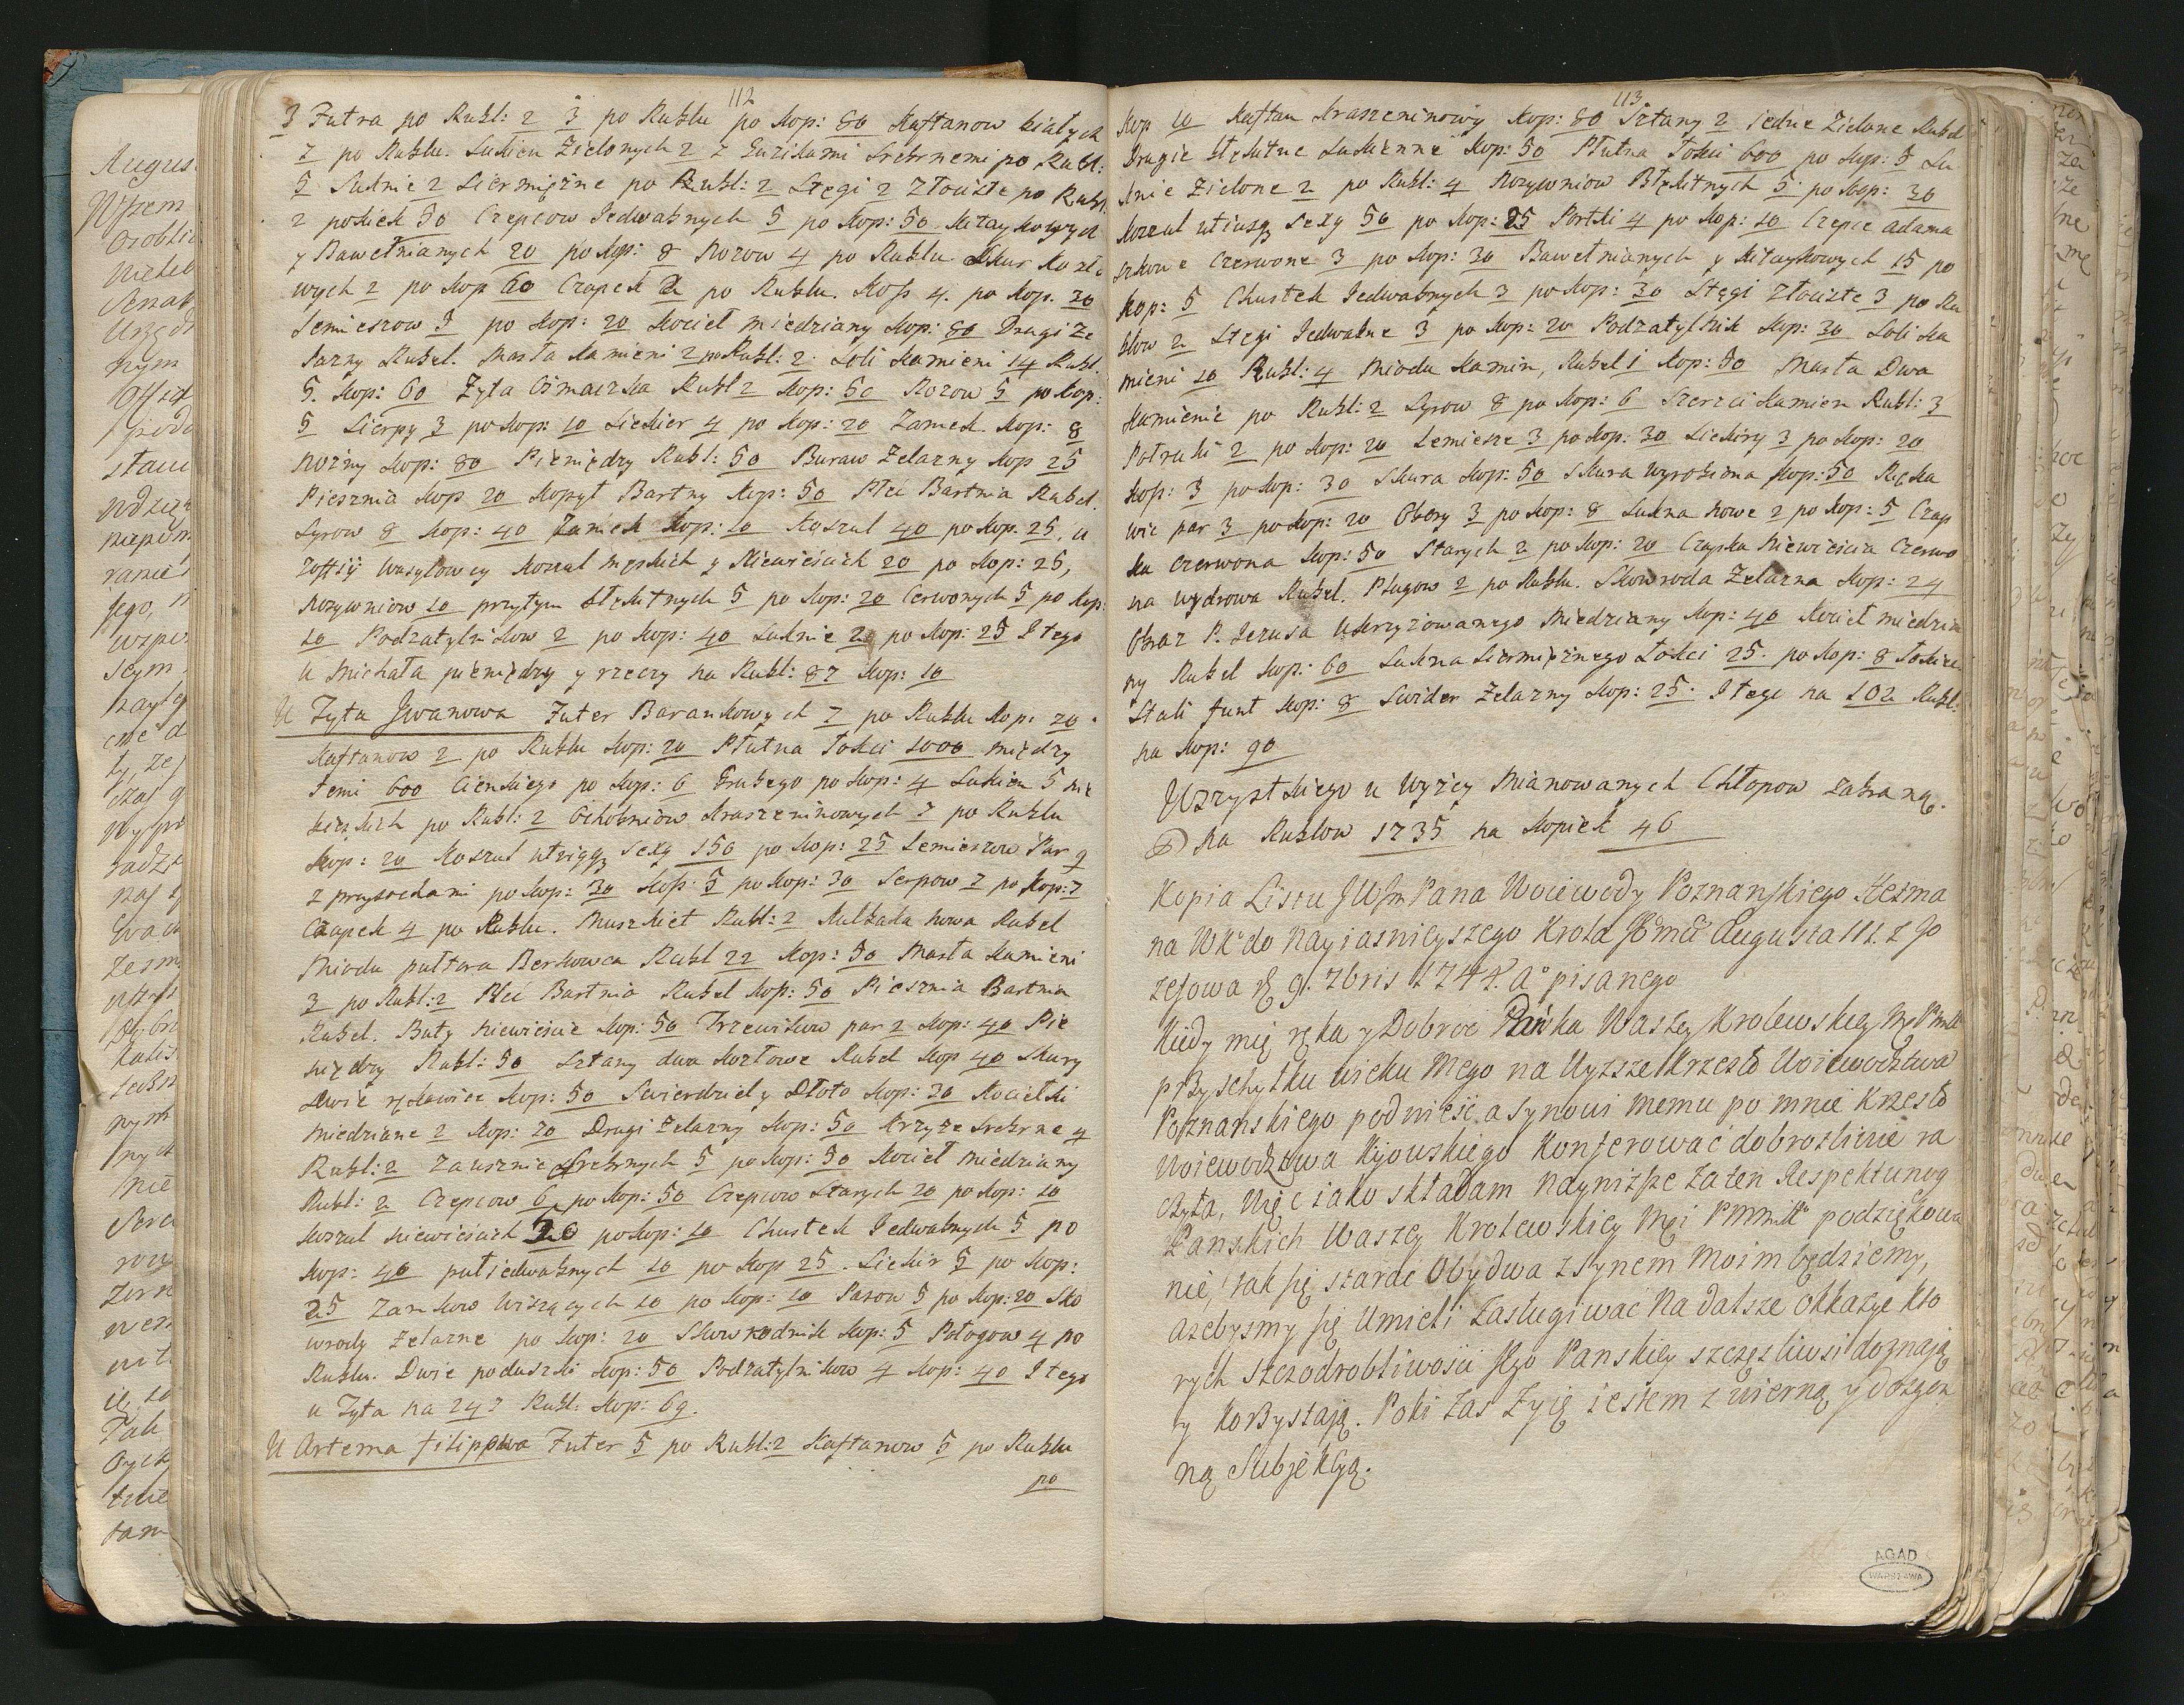 112
3 Futra po Rubl: 2 3 po Rublu po Kop: 80 Kaftanow białych
7 po Rublu. Sukien Zielonych 2 z Guzikami Srebrnemi po Rubl:
5 Suknie 2 Siermiężne po Rubl: 2 Stęgi 2 Złociste po Rubl.
2 po Kich 50 Czepcow Jedwabnych 5 po Kop: 50 Kitaykowych
y Bawełnianych 20 po Kop: 8 Nozow 4 po Rublu Skur Kozło
wych 2 po Kop 60 Czapek 2 po Rublu. Koss 4. po Kop. 20
Lemieszow 3 po Kop: 20 Kocieł miedziany Kop: 80 Drugi Że
lazny Rubel. Masła Kamieni 2 po Rubl: 2. Soli Kamieni 14 Rubl.
5. Kop: 60 Żyta Ośmaczka Rubl 2 Kop: 50 Nozow 5 po Kop:
5 Sierpy 3 po Kop: 10 Siekier 4 po Kop: 20 Zamek Kop: 8
Nożny Kop: 80 Pieniędzy Rubl: 50 Buraw Żelazny Kop 25
Piesznia Kop 20 Kopyt Bartny Kop: 50 Płeć Bartnia Rubel.
Syrow 8 Kop: 40 Zamek Kop: 10 Koszul 40 po Kop. 25, u
Zoffiy Wasylowey Koszul męskich y Niewieścich 20 po Kop: 25,
Nozywniow 10 przytym błękitnych 5 po Kop: 20 Cerwonych 5 po Kop:
10 Podzatylnikow 2 po Kop: 40 Suknie 2 po Kop: 25 Itego
u Michała pieniędzy y rzeczy na Rubl: 87 Kop: 10
U Tyta Jwanowa Futer Barankowych 7 po Rublu Kop: 20.
Kaftanow 2 po Rublu Kop: 20 Płutna Łokci 1000 między
temi 600 Cienkiego po Kop: 6 Grubego po Kop: 4 Sukien 5 nie
bieskich po Rubl: 2 Ochobniow Kraszeninowych 7 po Rublu
Kop: 20 Koszul utriqq Sexy 150 po Kop: 25 Lemieszow Par 9
z przysochami po Kop: 30 Koss 5 po Kop: 30 Serpow 7 po Kop: 7
Czapek 4 po Rublu. Muszkiet Rubl: 2 Kulbaka nowa Rubel
Miodu pułtora Berkowca Rubl 22 Kop: 50 Masła Kamieni
3 po Rubl: 2 Płeć Bartnia Rubel Kop: 50 Piesznia Bartnia
Rubel. Buty Niewieście Kop: 50 Trzewikow par 2 Kop: 40 Pie
niędzy Rubl: 50 Sztany dwa Kozłowe Rubel Kop 40 Skury
Dwie rękawice Kop: 50 Swierdziel y Dłoto Kop: 20 Kociełki
miedziane 2 Kop: 20 Drugi Żelazny Kop: 50 Krzyże Srebrne 4
Rubl: 2 Zausznic Srebrnych 5 po Kop: 50 Kocieł miedziany
Rubl: 2 Czepcow 6 po Kop: 50 Czepcow Starych 20 po Kop: 10
Koszul Niewieścich 20 po Kop: 10 Chustek Jedwabnych 5 po
Kop: 40 pułjedwabnych 10 po Kop 25. Siekir 5 po Kop:
25 Zamkow Wiszących 10 po Kop: 10 Pasow 5 po Kop: 20 Sko
wrody Żelazne po Kop: 20 Skowrodnik Kop: 5 Połogow 4 po
Rublu. Dwie poduszki Kop: 50 Podzatylnikow 4 Kop: 40 Itego
u Tyta na 247 Rubl: Kop: 69.
U Artema filippowa Futer 5 po Rubl: 2 Kaftanow 5 po Rublu
po
113
Kop 10 Kaftan Kraszeninowy Kop: 80 Sztany 2 jedne Zielone Rubel
Drugie błękitne Sukienne Kop: 50 Płutna Łokci 600 po Kop: 5 Su
knie Zielone 2 po Rubl: 4 Nozywniow Błękitnych 5 po Kop: 30
Koszul utiusq Sexy 50 po Kop: 25 Portki 4 po Kop: 10 Czepce adama
szkowe Czerwone 3 po Kop: 30 Bawełnianych y Kitaykowych 15 po
Kop: 5 Chustek Jedwabnych 3 po Kop: 30 Stęgi Złociste 3 po Ru
blow 2 Stęgi Jedwabne 3 po Kop: 20 Podzatylnik Kop: 30 Soli Ka
mieni 10 Rubl: 4 Miodu Kamin, Rubel 1 Kop: 50 Masła Dwa
Kamienie po Rubl: 2 Syrow 8 po Kop: 6 Szerzci Kamien Rubl: 3
Potruki 2 po Kop: 20 Lemiesze 3 po Kop: 30 Siekiry 3 po Kop: 20
Koss: 3 po Kop: 30 Skura Kop: 50 Skura Wyrobiona Kop: 50 Ręka
wic par 3 po Kop: 20 Obory 3 po Kop: 8 Sukna nowe 2 po Kop: 5 Czap
ka Czerwona Kop: 50 Starych 2 po Kop: 20 Czapka Niewieścia Czerwo
na wydrowa Rubel. Pługow 2 po Rublu. Skowroda Żelazna Kop: 24
Obraz P. Jezusa Ukrzyżowanego Miedziany Kop: 40 Kocieł miedzia
ny Rubel Kop: 60 Sukna Siermiężnego Łokci 25. po Kop: 8 Łokiec
Stali funt Kop: 8 Swider Żelazny Kop: 25. Itego na 102 Rubl:
na Kop: 90
Wszystkiego u Wyżey mianowanych Chłopow zabrano.
Na Rublow 1735 na Kopiek 46
Kopia Listu JWJm Pana Woiewody Poznanskiego Hetma
na WKo do Nayiasnieyszego Krola Jemci Augusta III. z Jo
zefowa d. 9. 7bris 1744. Ao pisanego
Kiedy mię ręka y Dobroć Pańska Waszey Krolewskiey
przy schyłku wieku Mego na Wyzsze Krzesło Woiewodztwa
Poznanskiego podnieść, a Synowi memu po mnie Krzesło
Woiewodztwa Kijowskiego Konferować dobrotliwie ra
czyła, Więc iako składam nayniższe za ten Respekt unog
Pańskich Waszey Krolewskiey podziękowa
nie, tak się starać Obydwa z Synem moim będziemy,
ażebysmy się Umieli zasługiwać Na dalsze okkazye kto
rych szczodrobliwości Jego Panskiey szczęsliwsi doznają
y korzystają. Poki zas Żyię iestem z wierną y dozgon
ną Subjekcyą.
AGAD
WARSZAWA